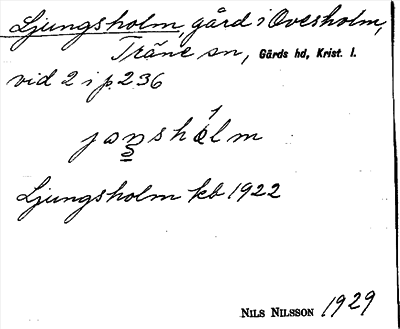 Ljungsholm, gård i Ovesholm,
Träne sn, Gärds hd, Krist. l.
vid 2 i p. 236
Ljungsholm kb 1922
NILS NILSSON 1929